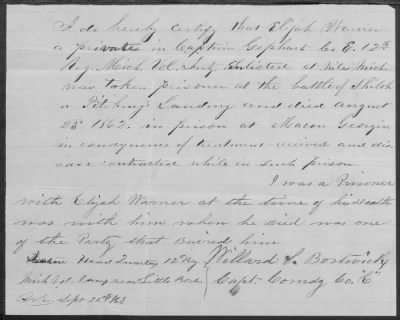 I do hereby certify that Elijah Warner
a private in Captain Gephart Co. E. 12th
Reg. Mich. Vol. Infty. Enlisted at Niles Mich
was taken prisoner at the battle of Shiloh
or Pitsburg Landing and died August
25th 1862. in prison at Macon Georgia
in consequence of treatment received and dis-
ease contracted while in such prison
I was a Prisoner
with Elijah Warner at the time of his death
was with him when he died was one
of the Party that Buried him
Head Quarters 12th Reg
Willard S. Bostwick
Mich Vol. Camp near Little Rock
Capt. Comdg Co. "E"
Sept 21st /63